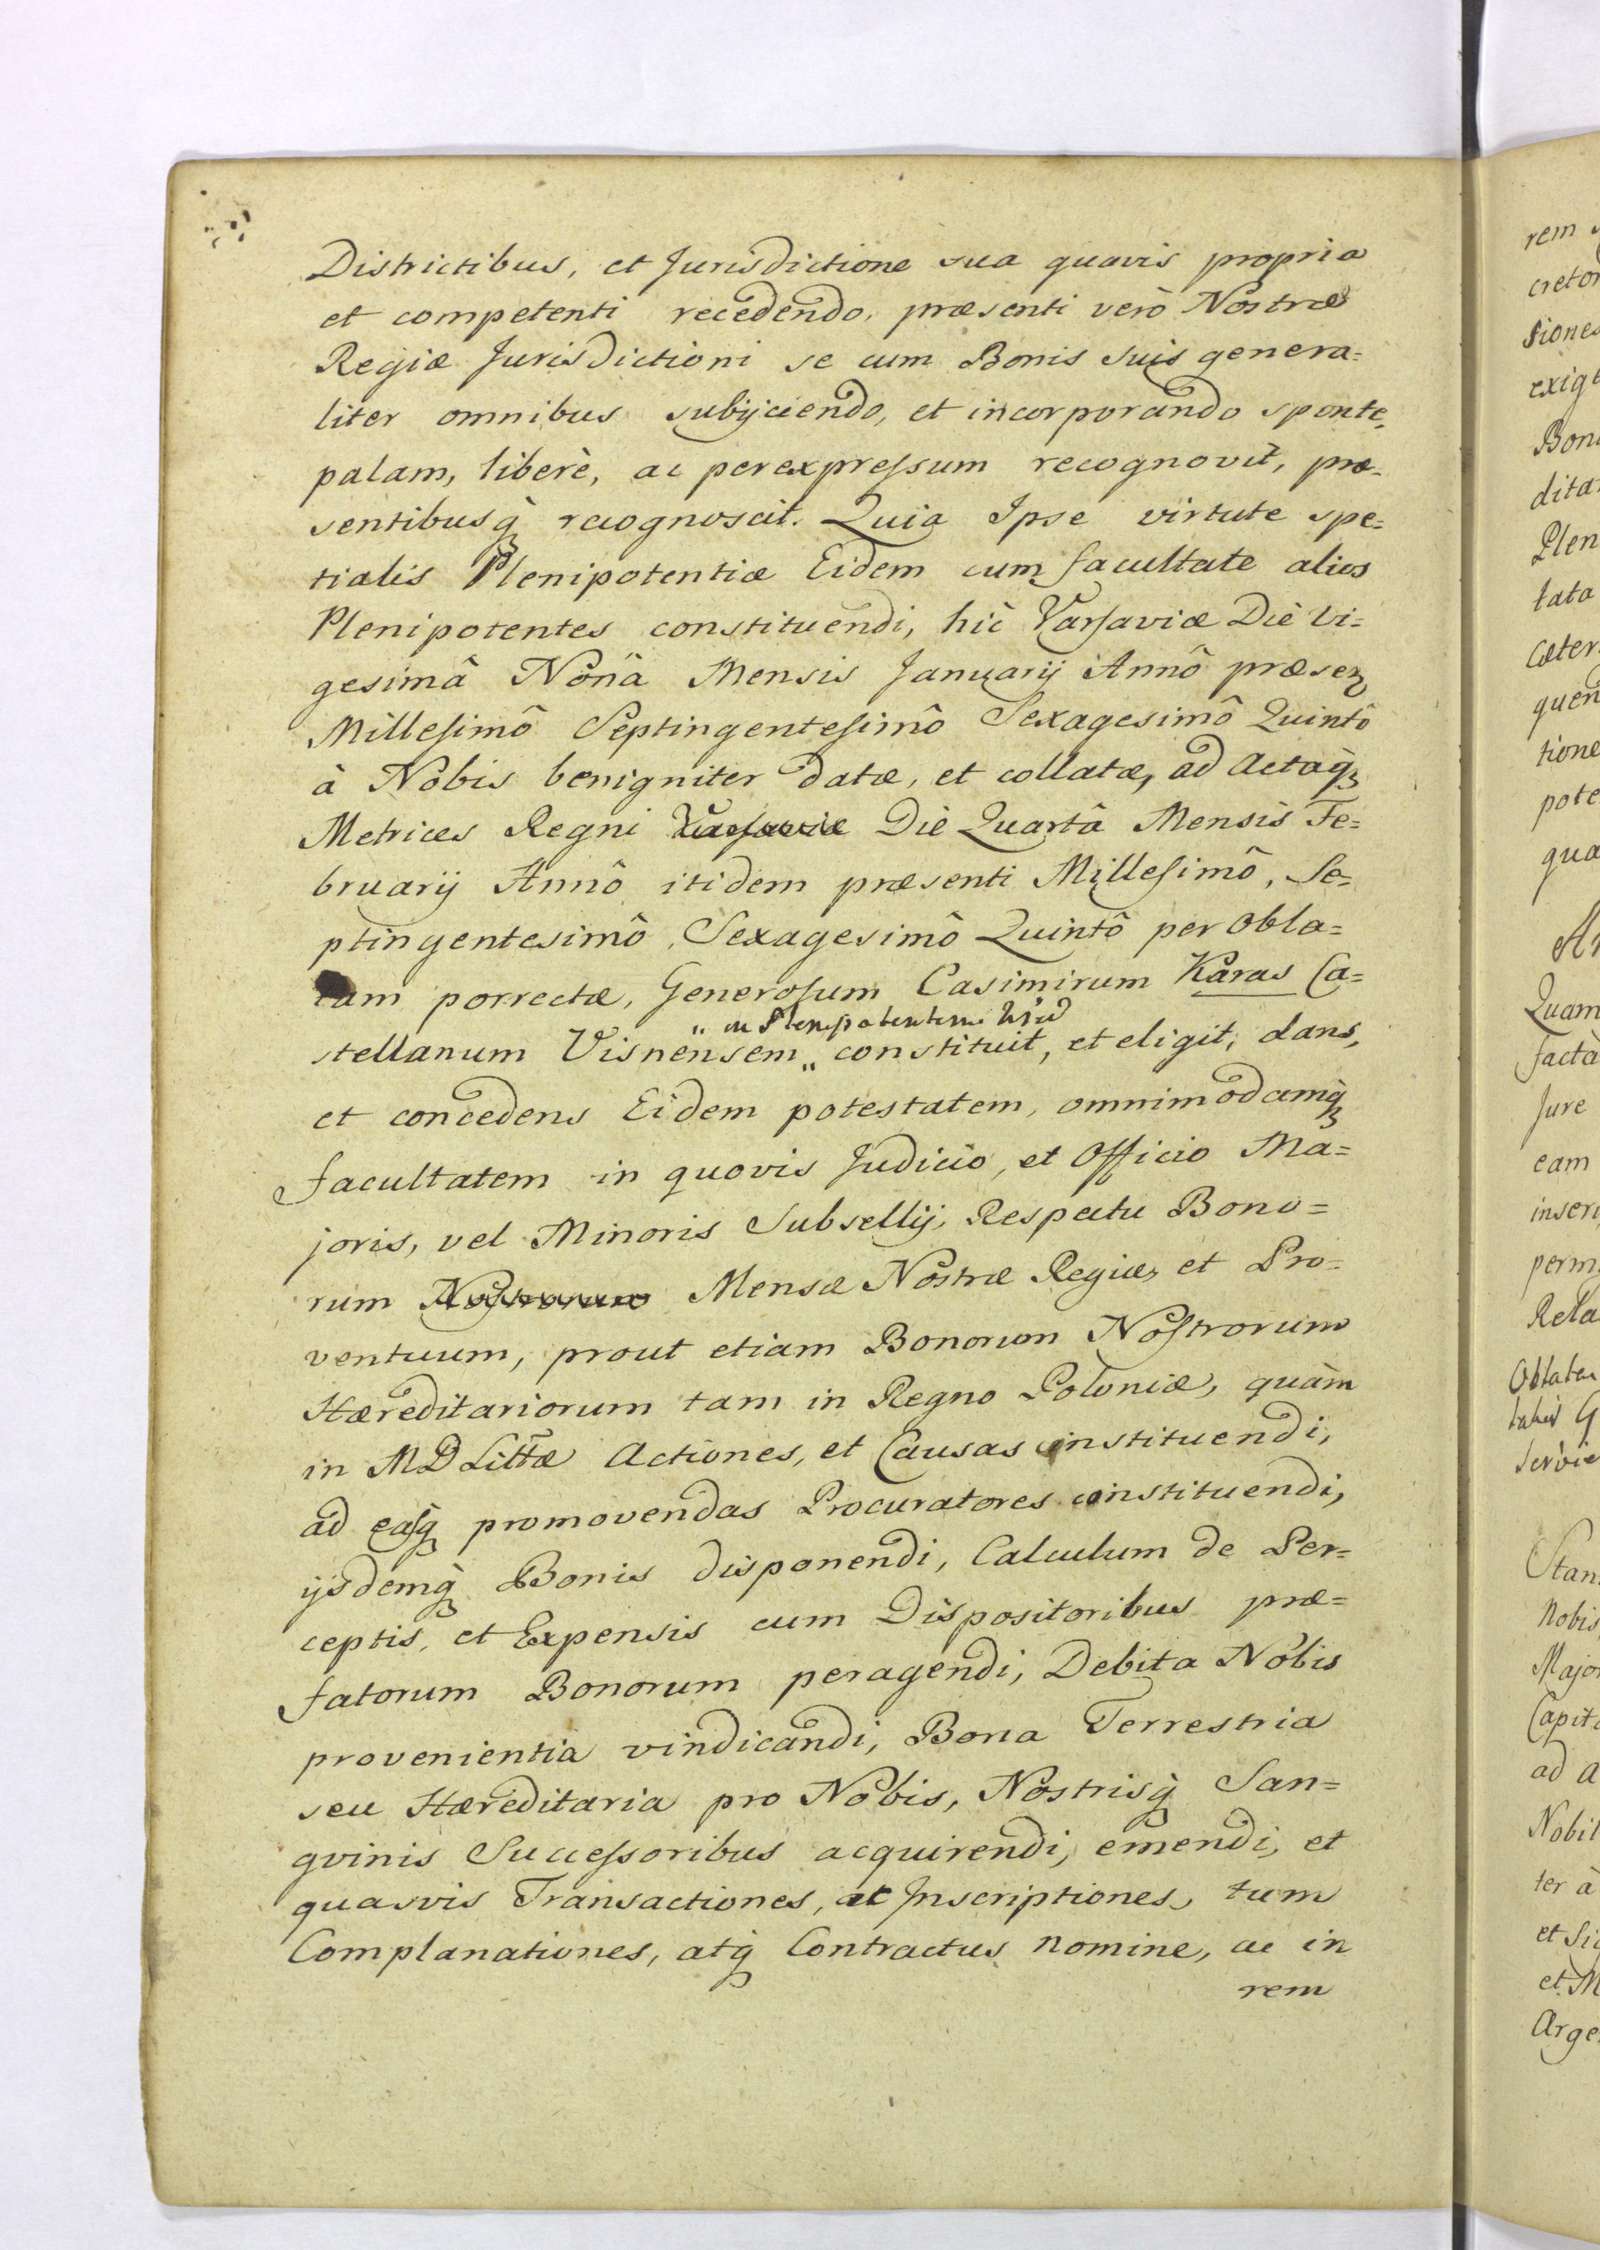 Districtibus, et Jurisdictione sua quavis propria
et competenti recedendo, præsenti verò Nostræ
Regiæ Jurisdictioni se cum Bonis suis genera=
liter omnibus subijciendo, et incorporando sponte,
palam, liberè, ac per expressum recognovit, præ=
sentibusq̀ recognoscit. Quia Ipse virtute spe=
tialis Plenipotentiæ Eidem cum facultate alios
Plenipotentes constituendi, hic Varsaviæ Die Vi=
gesimâ Nonâ Mensis Januarij Annô præsen
Millesimô Septingentesimô Sexagesimô Quintô
à Nobis benigniter datæ, et collatæ, ad Actaq̀
Metrices Regni Varsaviæ Die Quartâ Mensis Fe=
bruarij Annô itidem præsenti Millesimô, Se=
ptingentesimô, Sexagesimô Quintô per Obla=
tam porrectæ, Generosum Casimirum Karas Ca=
" in Plenipotentem
stellanum Visnensem " constituit, et eligit, dans,
et concedens Eidem potestatem, omnimodamq̀
facultatem in quovis Judicio, et Officio Ma=
joris, vel Minoris Subsellij, Respectu Bono=
rum Nostrorum Mensæ Nostræ Regiæ, et Pro=
ventuum, prout etiam Bonorum Nostrorum
Hæreditariorum tam in Regno Poloniæ, quàm
in MD Littæ Actiones, et Causas instituendi,
ad easq̀ promovendas Procuratores constituendi,
ijsdemq̀ Bonis disponendi, Calculum de Per=
ceptis, et Expensis cum Dispositoribus præ=
fatorum Bonorum peragendi, Debita Nobis
provenientia vindicandi, Bona Terrestria
seu Hæreditaria pro Nobis, Nostrisq̀ San=
gvinis Successoribus acquirendi, emendi, et
quasvis Transactiones, et Inscriptiones, tum
Complanationes, atq̀ Contractus nomine, ac in
rem